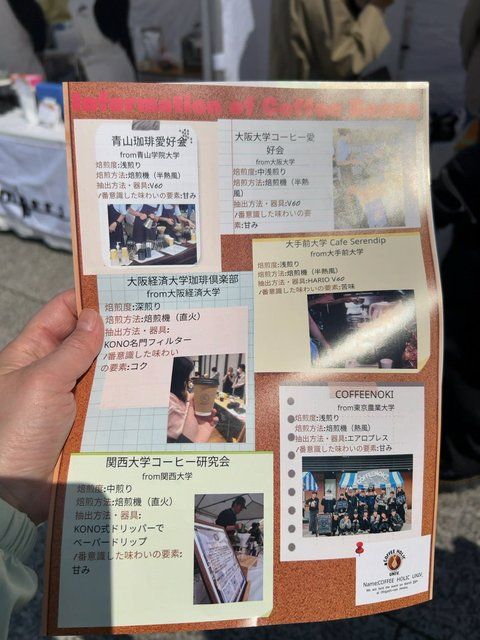 Information of Coffee Beans
青山珈琲愛好会
from青山学院大学
焙煎度:浅煎り
焙煎方法:焙煎機（半熱風）
抽出方法・器具:V60
1番意識した味わいの要素:甘み
大阪大学コーヒー愛
好会
from大阪大学
焙煎度:中浅煎り
焙煎方法:焙煎機（半熱
風）
抽出方法・器具:V60
1番意識した味わいの要
素:甘み
大手前大学 Cafe Serendip
from大手前大学
焙煎度:浅煎り
焙煎方法:焙煎機（半熱風）
抽出方法・器具:HARIO V60
1番意識した味わいの要素:苦味
大阪経済大学珈琲倶楽部
from大阪経済大学
焙煎度:深煎り
焙煎方法:焙煎機（直火）
抽出方法・器具:
KONO名門フィルター
1番意識した味わい
の要素:コク
COFFEENOKI
from東京農業大学
焙煎度:浅煎り
焙煎方法:焙煎機（熱風）
抽出方法・器具:エアロプレス
1番意識した味わいの要素:甘み
関西大学コーヒー研究会
from関西大学
焙煎度:中煎り
焙煎方法:焙煎機（直火）
抽出方法・器具:
KONO式ドリッパーで
ペーパードリップ
1番意識した味わいの要素:
甘み
COFFEE HOLIC
UNIV.
Name:COFFEE HOLIC UNIV.